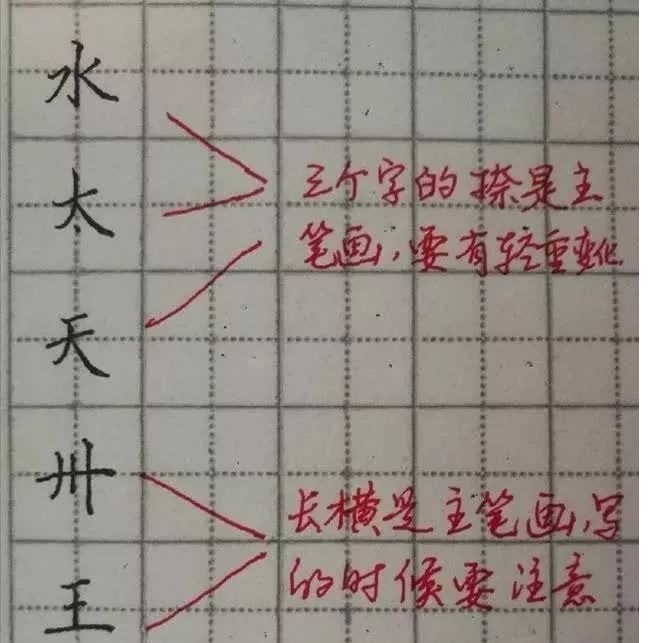 水
太
天
卅
王
三个字的捺是主
笔画,要有轻重变化
长横是主笔画,写
的时候要注意